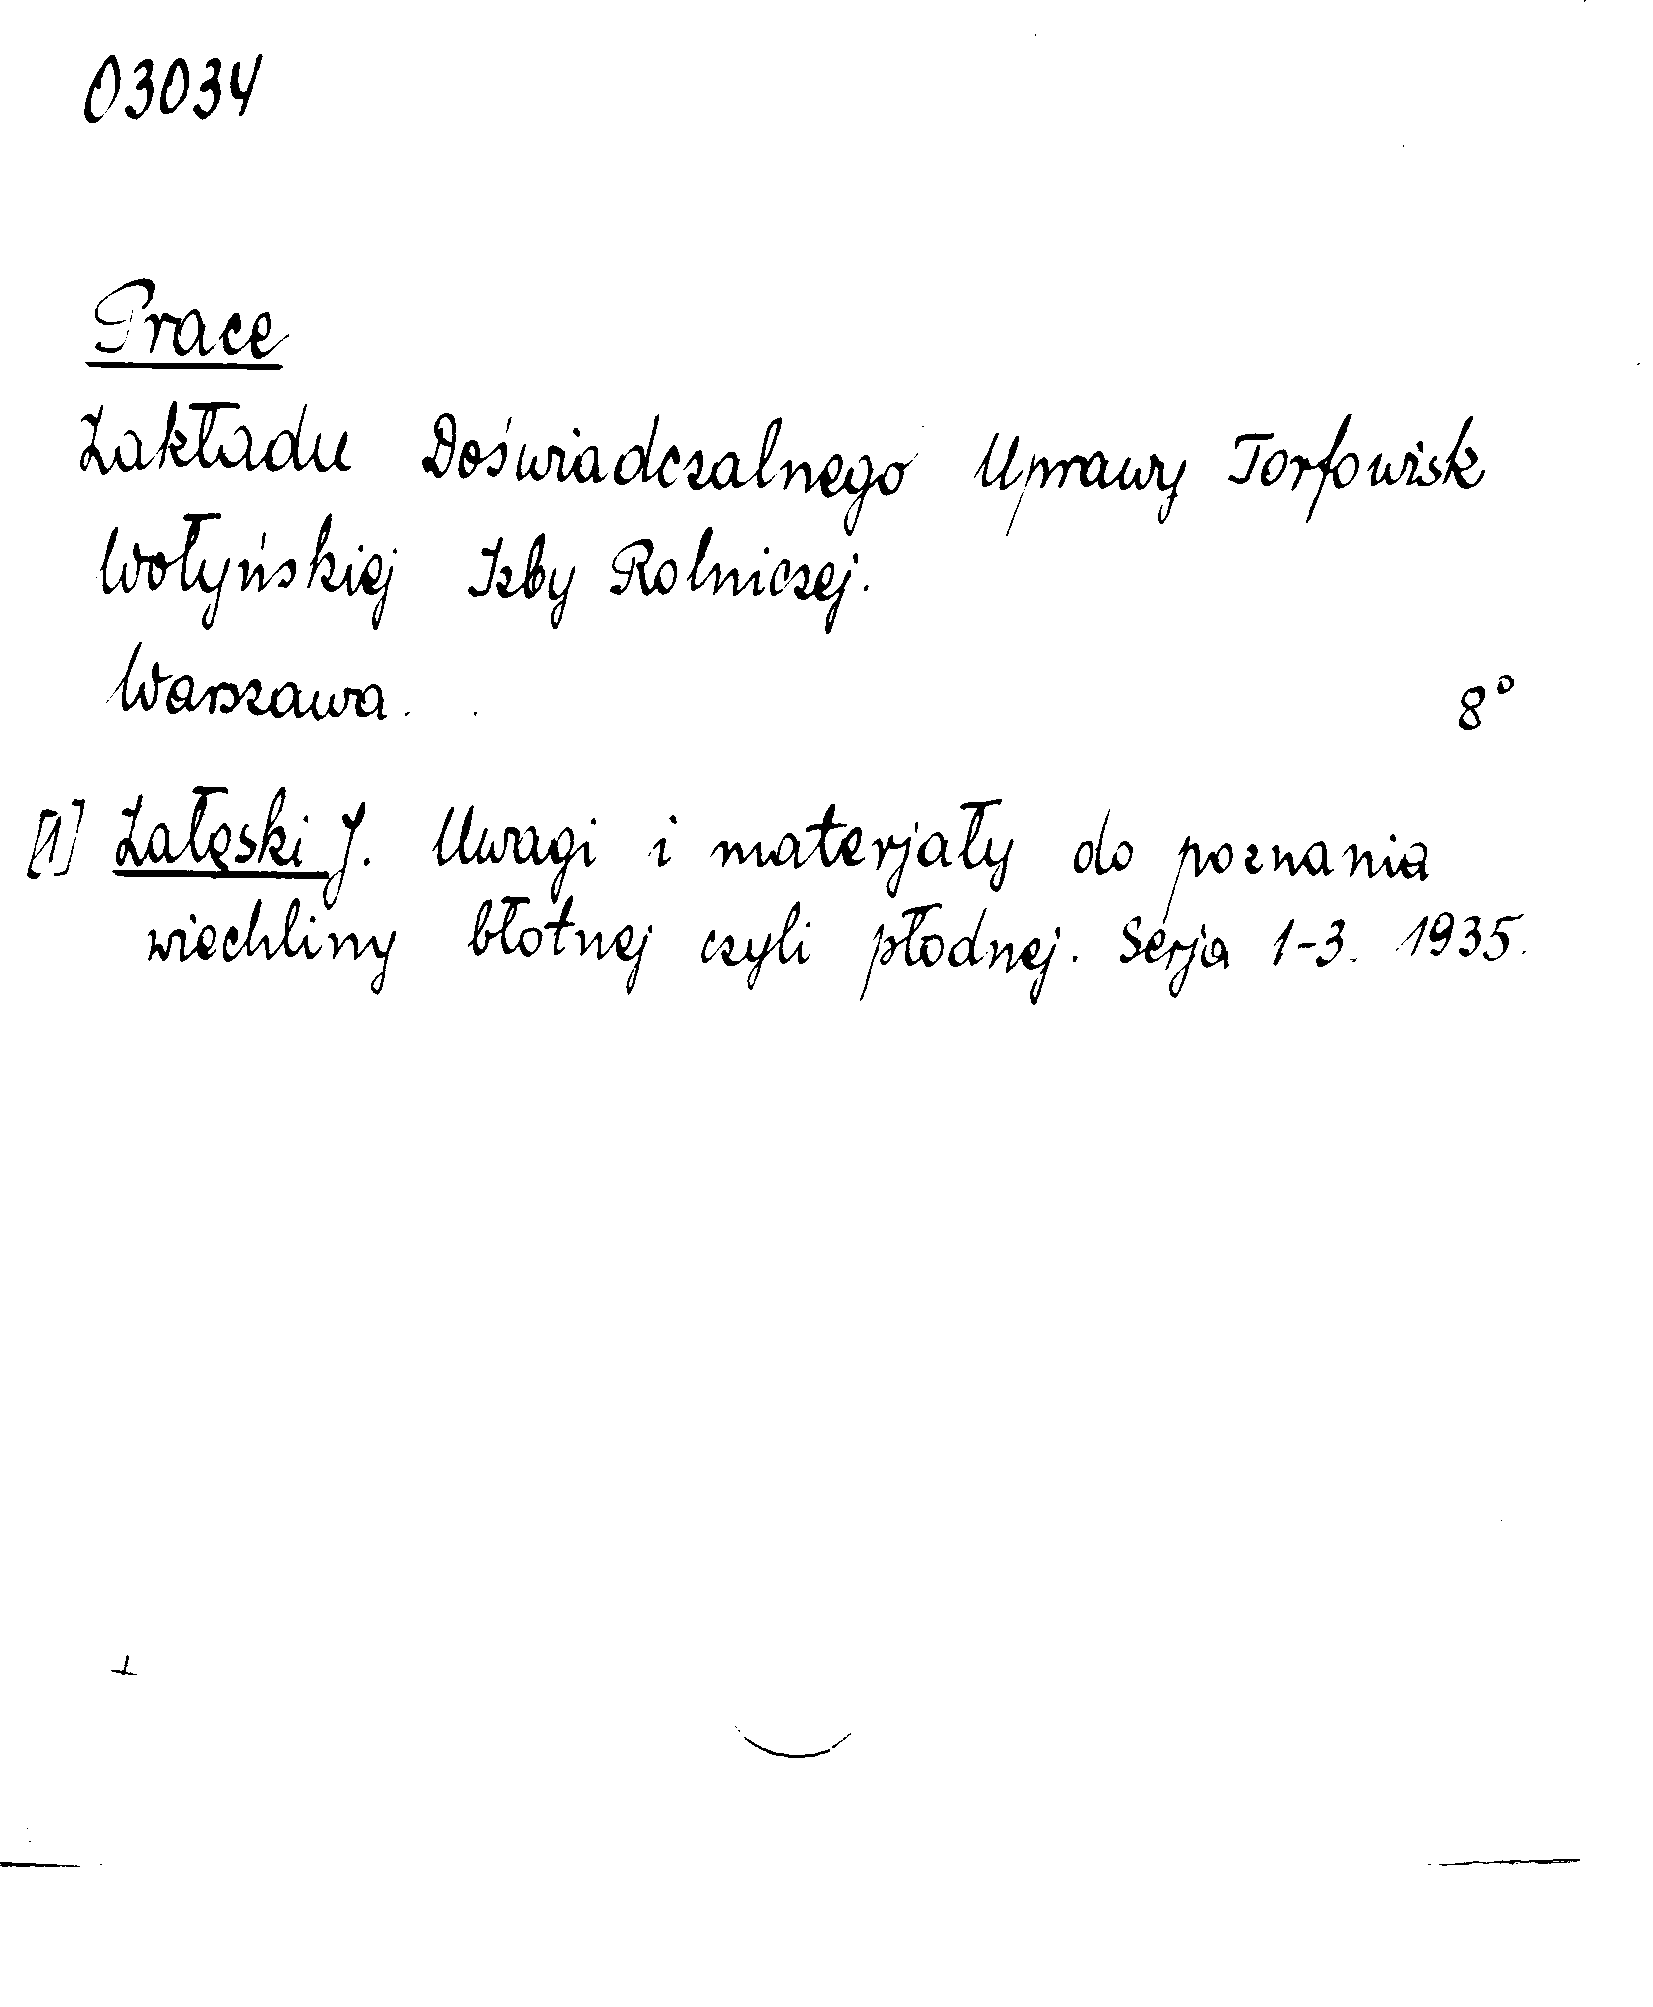 03034
Prace
Zakładu Doświadczalnego Uprawy Torfowisk
Wołyńskiej Izby Rolniczej.
Warszawa. 8°
[1] Załęski J. Uwagi i materjały do poznania
wiechliny błotnej czyli płodnej. Serja 1-3. 1935.